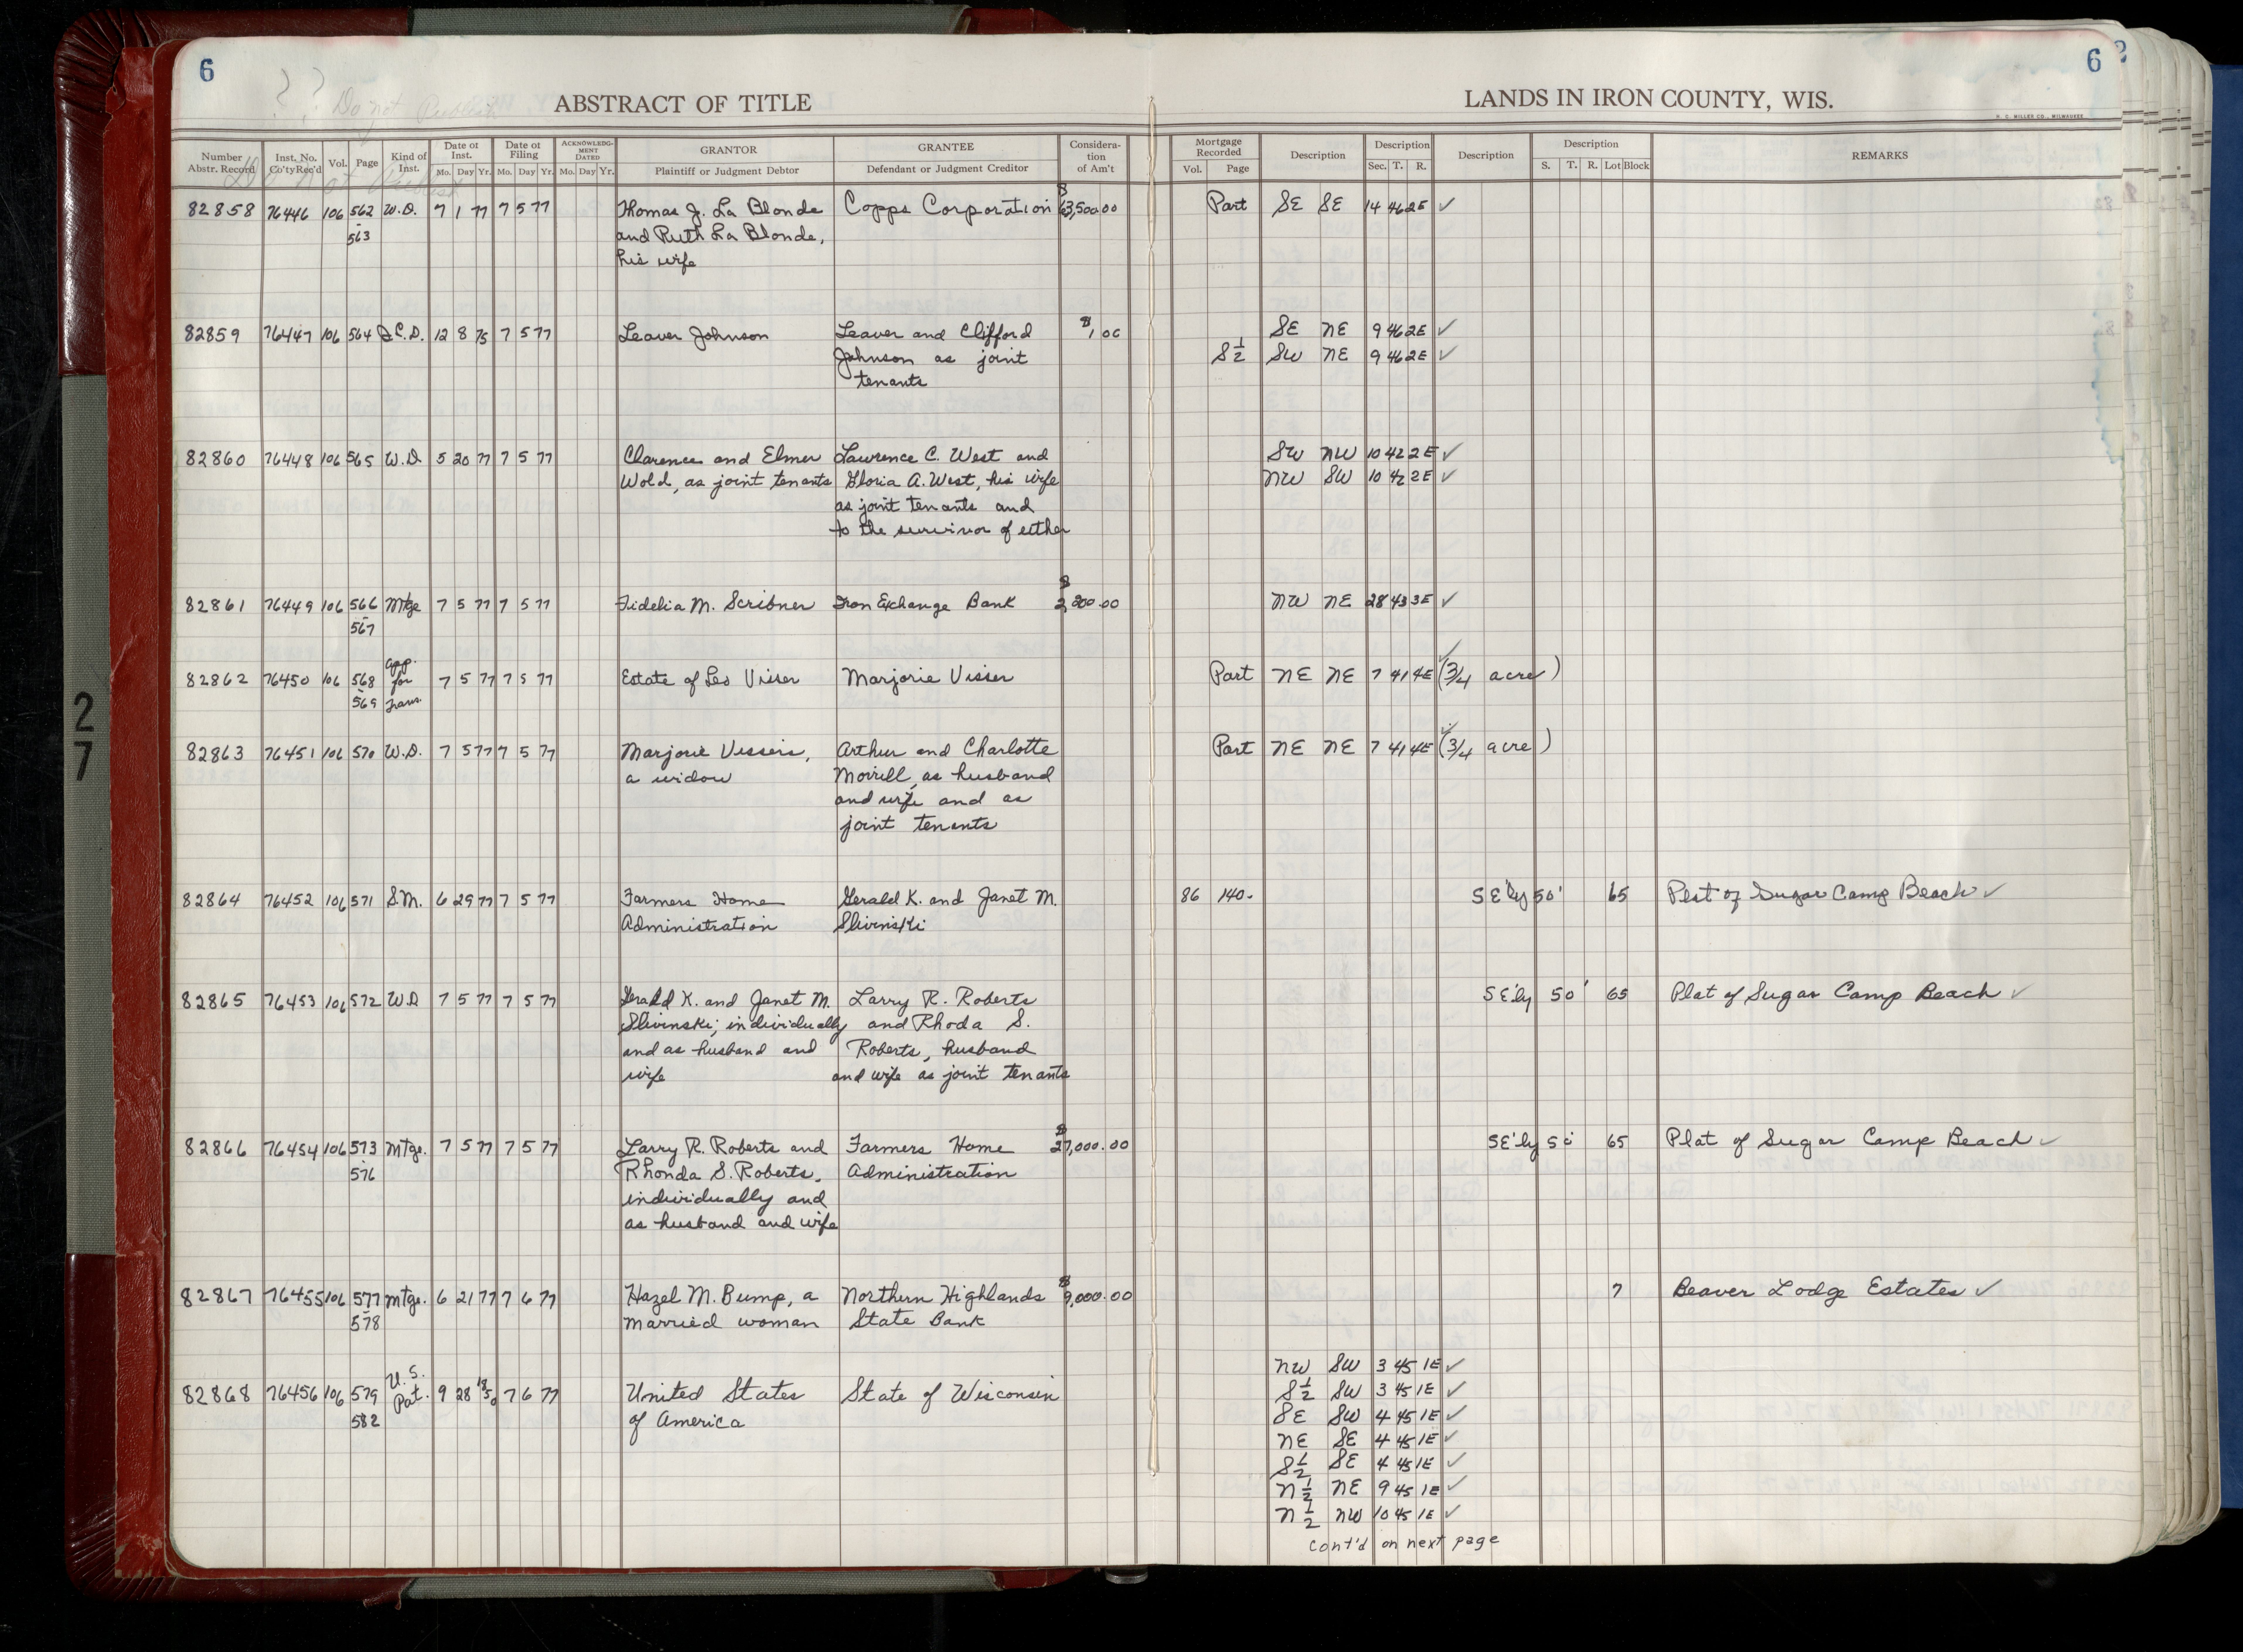 6
? ? Do not Publish
ABSTRACT OF TITLE
LANDS IN IRON COUNTY, WIS.
6
H. C. MILLER CO., MILWAUKEE
Number Abstr. Record | Inst. No. Co'ty Rec'd | Vol. | Page | Kind of Inst. | Date of Inst. Mo. Day Yr. | Date of Filing Mo. Day Yr. | ACKNOWLEDGMENT DATED Mo. Day Yr. | GRANTOR Plaintiff or Judgment Debtor | GRANTEE Defendant or Judgment Creditor | Consideration of Am't | Mortgage Recorded Vol. Page | Description | Description Sec. T. R. | Description | Description S. T. R. Lot Block | REMARKS
Do not Publish
82858 76446 106 562 W.D. 7 1 77 7 5 77 Thomas J. La Blonde Copps Corporation $63,500.00 Part SE SE 14 46 2E ✓
-563 and Ruth La Blonde,
his wife
82859 76447 106 564 Q.C.D. 12 8 75 7 5 77 Leaver Johnson Leaver and Clifford $1.00 SE NE 9 46 2E ✓
Johnson as joint S½ SW NE 9 46 2E ✓
tenants
82860 76448 106 565 W.D. 5 20 77 7 5 77 Clarence and Elmer Lawrence C. West and SW NW 10 42 2E ✓
Wold, as joint tenants Gloria A. West, his wife NW SW 10 42 2E ✓
as joint tenants and
to the survivor of either
82861 76449 106 566 Mtge 7 5 77 7 5 77 Fidelia M. Scribner Iron Exchange Bank $2,800.00 NW NE 28 43 3E ✓
-567
82862 76450 106 568 App. for Trans. 7 5 77 7 5 77 Estate of Leo Visser Marjorie Visser Part NE NE 7 41 4E (3/4 acre) ✓
-569
82863 76451 106 570 W.D. 7 5 77 7 5 77 Marjorie Vissers, Arthur and Charlotte Part NE NE 7 41 4E (3/4 acre) ✓
a widow Morrill, as husband
and wife and as
joint tenants
82864 76452 106 571 S.M. 6 29 77 7 5 77 Farmers Home Gerald K. and Janet M. 86 140- SE'ly 50' 65 Plat of Sugar Camp Beach ✓
Administration Slivinski
82865 76453 106 572 W.D 7 5 77 7 5 77 Gerald K. and Janet M. Larry R. Roberts SE'ly 50' 65 Plat of Sugar Camp Beach ✓
Slivinski; individually and Rhoda S.
and as husband and Roberts, husband
wife and wife as joint tenants
82866 76454 106 573 Mtge. 7 5 77 7 5 77 Larry R. Roberts and Farmers Home $27,000.00 SE'ly 50' 65 Plat of Sugar Camp Beach ✓
-576 Rhonda S. Roberts, Administration
individually and
as husband and wife
82867 76455 106 577 Mtge. 6 21 77 7 6 77 Hazel M. Bump, a Northern Highlands $9,000.00 7 Beaver Lodge Estates ✓
-578 Married woman State Bank
NW SW 3 45 1E ✓
82868 76456 106 579 U.S. Pat. 9 28 1850 7 6 77 United States State of Wisconsin S½ SW 3 45 1E ✓
582 of America SE SW 4 45 1E ✓
NE SE 4 45 1E ✓
S½ SE 4 45 1E ✓
N½ NE 9 45 1E ✓
N½ NW 10 45 1E ✓
cont'd on next page
27